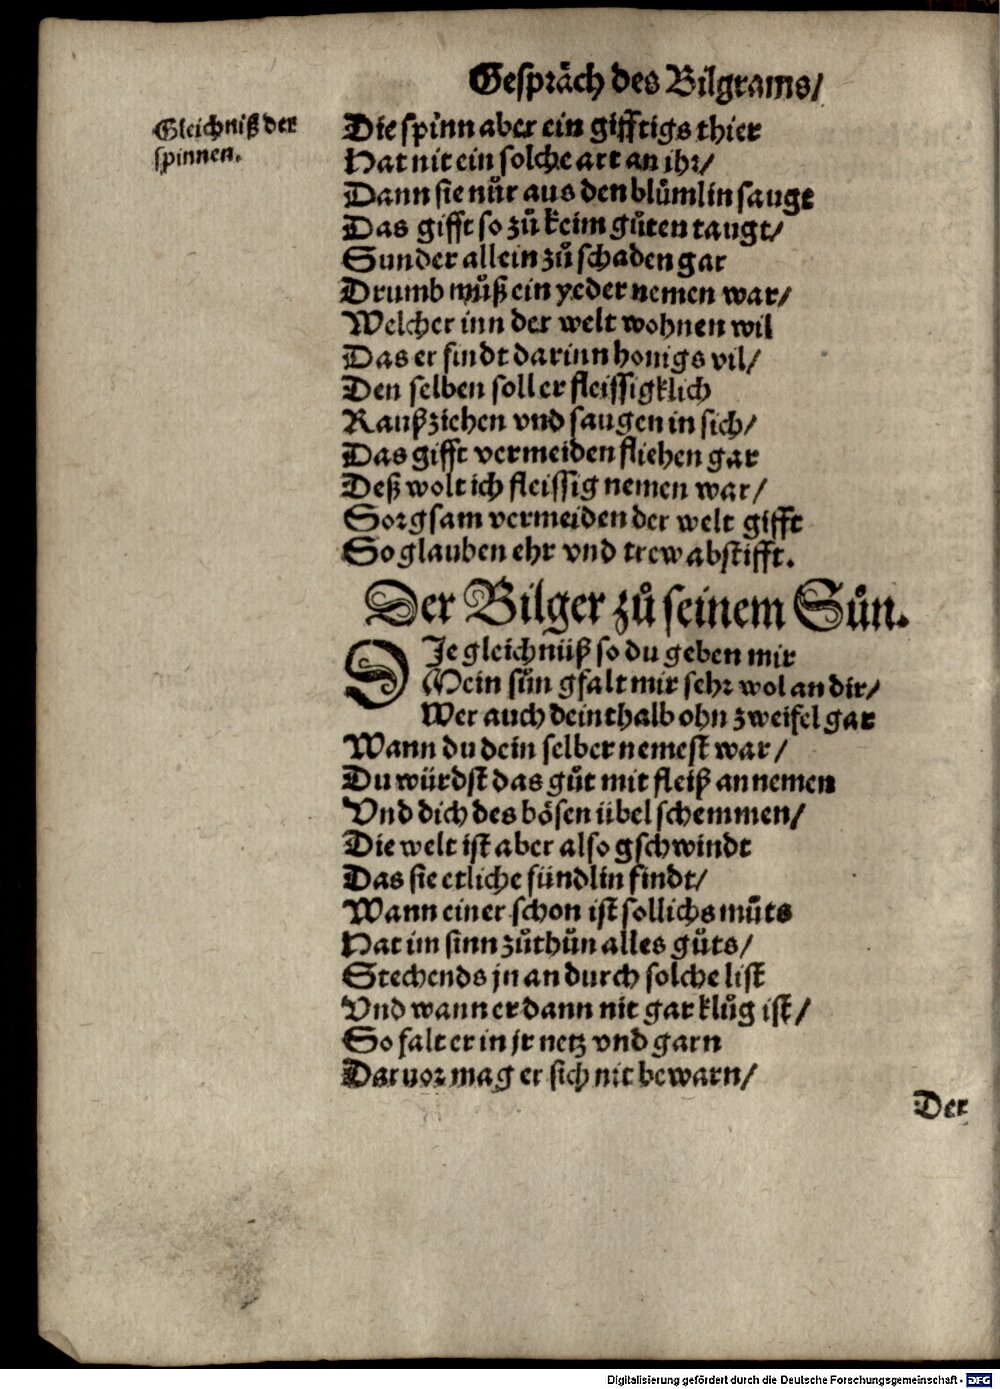 Gespräch des Bilgrams/
Gleichniß der
spinnen.
Die spinn aber ein gifftigs thier
Hat nit ein solche art an ihr/
Dann sie nůr aus den blůmlin saugt
Das gifft so zů keim gůten taugt/
Sunder allein zů schaden gar
Drumb můß ein yeder nemen war/
Welcher inn der welt wohnen wil
Das er findt darinn honigs vil/
Den selben soll er fleissigklich
Raußziehen vnd saugen in sich/
Das gifft vermeiden fliehen gar
Deß wolt ich fleissig nemen war/
Sorgsam vermeiden der welt gifft
So glauben ehr vnd trew abstifft.
Der Bilger zů seinem Sůn.
DIe gleichnüß so du geben mir
Mein sůn gfalt mir sehr wol an dir/
Wer auch deinthalb ohn zweifel gar
Wann du dein selber nemest war/
Du würdst das gůt mit fleiß annemen
Vnd dich des bösen übel schemmen/
Die welt ist aber also gschwindt
Das sie etliche fündlin findt/
Wann einer schon ist sollichs můts
Hat im sinn zůthůn alles gůts/
Stechends jn an durch solche list
Vnd wann er dann nit gar klůg ist/
So falt er in jr netz vnd garn
Daruor mag er sich nit bewarn/
Der
Digitalisierung gefördert durch die Deutsche Forschungsgemeinschaft - DFG